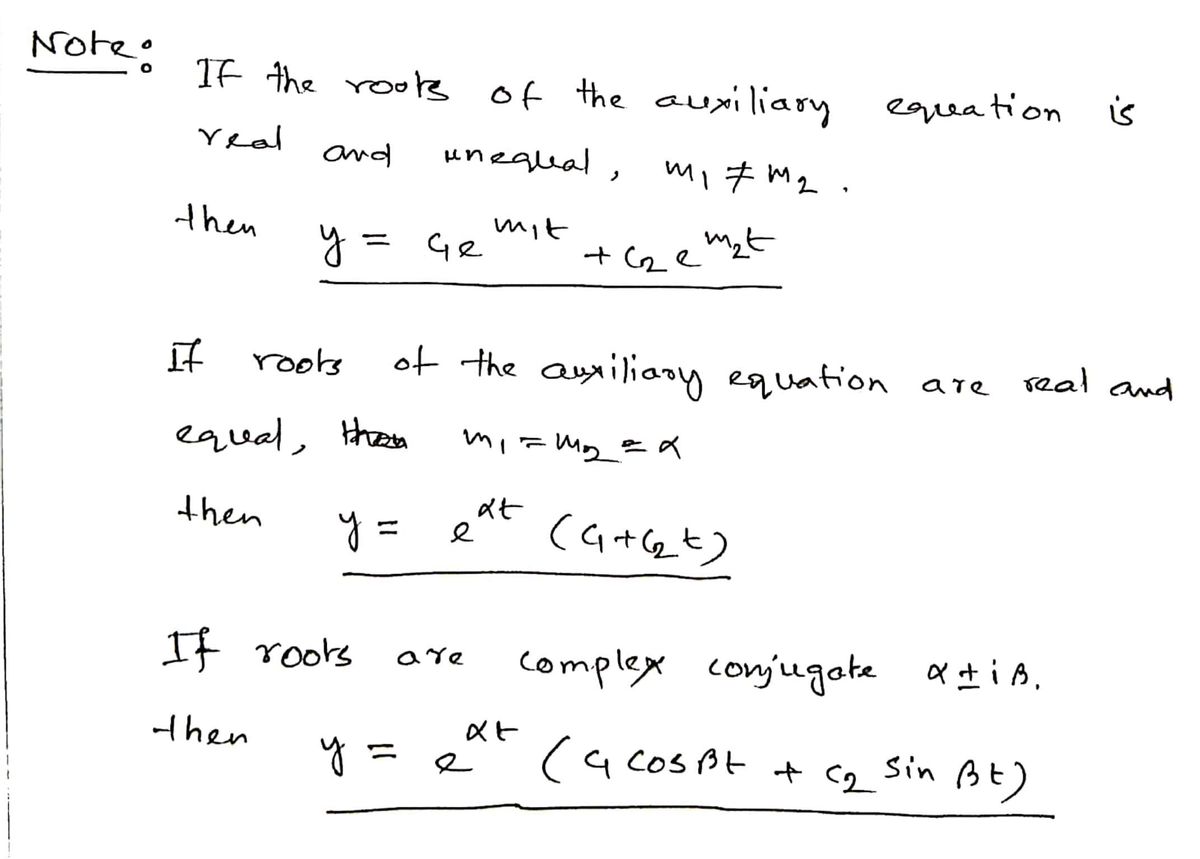 Note:
If the roots of the auxiliary equation is
real and unequal, m₁ ≠ m₂.
then y = C₁e^{m₁t} + C₂e^{m₂t}
If roots of the auxiliary equation are real and
equal, then m₁ = m₂ = α
then y = e^{αt} (C₁ + C₂t)
If roots are complex conjugate α ± iβ.
then y = e^{αt} (C₁ cos βt + C₂ sin βt)